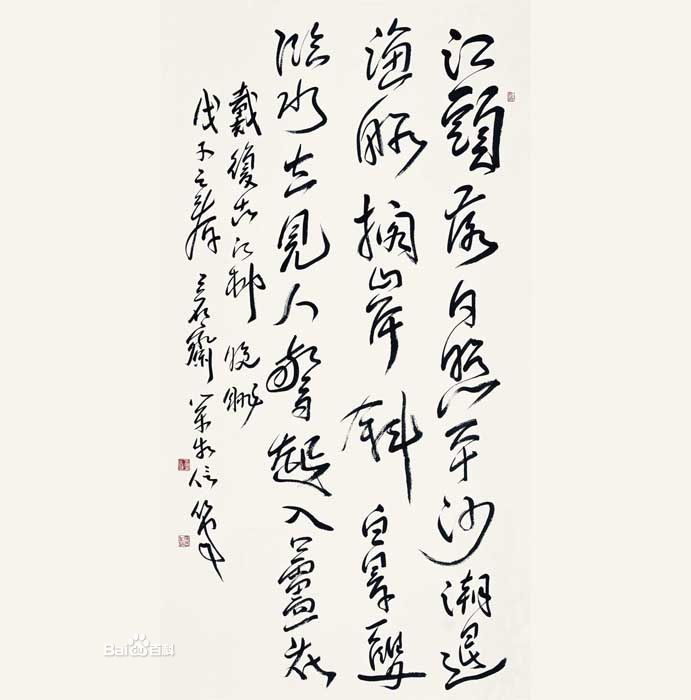 江頭落日照平沙潮退
漁船擱岸斜白鳥一雙
臨水立見人驚起入蘆花
戴復古江村晚眺
戊子之春 齋 信筆
Bai百科